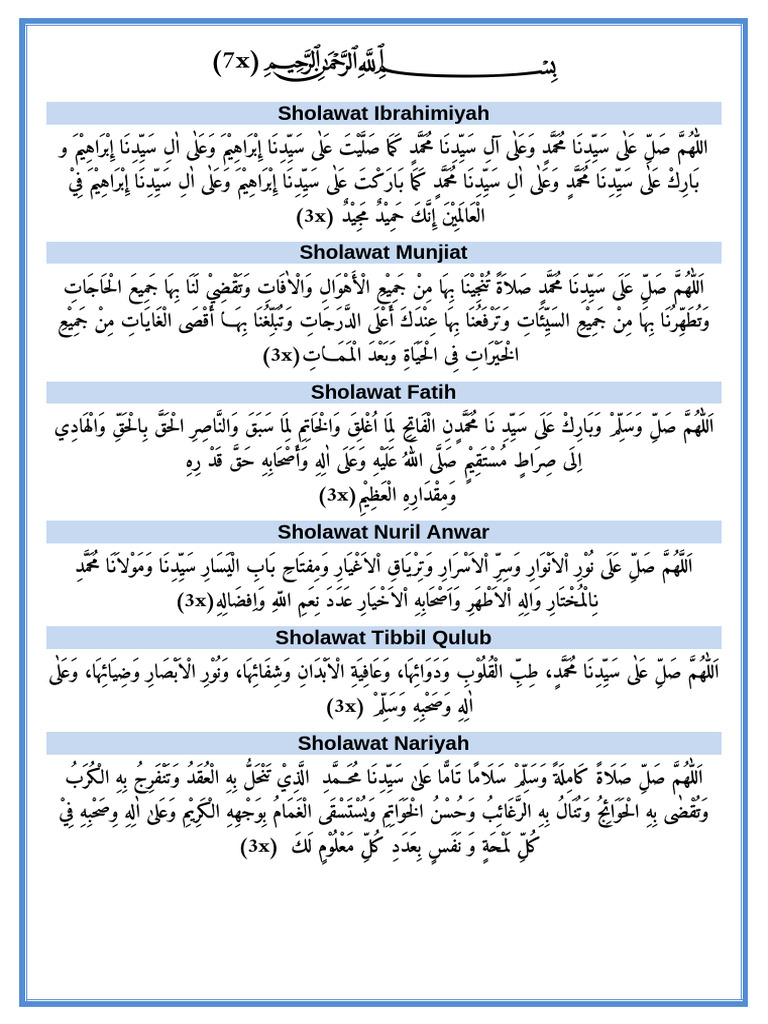 بِسْمِ اللَّهِ الرَّحْمَٰنِ الرَّحِيمِ (7x)
Sholawat Ibrahimiyah
اَللّٰهُمَّ صَلِّ عَلٰى سَيِّدِنَا مُحَمَّدٍ وَعَلٰى آلِ سَيِّدِنَا مُحَمَّدٍ كَمَا صَلَّيْتَ عَلٰى سَيِّدِنَا إِبْرَاهِيْمَ وَعَلٰى اٰلِ سَيِّدِنَا إِبْرَاهِيْمَ و
بَارِكْ عَلٰى سَيِّدِنَا مُحَمَّدٍ وَعَلٰى اٰلِ سَيِّدِنَا مُحَمَّدٍ كَمَا بَارَكْتَ عَلٰى سَيِّدِنَا إِبْرَاهِيْمَ وَعَلٰى اٰلِ سَيِّدِنَا إِبْرَاهِيْمَ فِيْ
الْعَالَمِيْنَ إِنَّكَ حَمِيْدٌ مَجِيْدٌ (3x)
Sholawat Munjiat
اَللّٰهُمَّ صَلِّ عَلَى سَيِّدِنَا مُحَمَّدٍ صَلاَةً تُنْجِيْنَا بِهَا مِنْ جَمِيْعِ الْأَهْوَالِ وَالْاٰفَاتِ وَتَقْضِيْ لَنَا بِهَا جَمِيعَ الْحَاجَاتِ
وَتُطَهِّرُنَا بِهَا مِنْ جَمِيْعِ السَيِّئَاتِ وَتَرْفَعُنَا بِهَا عِنْدَكَ أَعْلَى الدَّرَجَاتِ وَتُبَلِّغُنَا بِهَـا أَقْصَى الْغَايَاتِ مِنْ جَمِيْعِ
الْخَيْرَاتِ فِى الْحَيَاةِ وَبَعْدَ الْمَمَـاتِ(3x)
Sholawat Fatih
اَللّٰهُمَّ صَلِّ وَسَلِّمْ وَبَارِكْ عَلَى سَيِّدِ نَا مُحَمَّدٍنِ الْفَاتِحِ لِمَا اُغْلِقَ وَالْخَاتِمِ لِمَا سَبَقَ وَالنَّاصِرِ الْحَقَّ بِالْحَقِّ وَالْهَادِي
اِلَى صِرَاطٍ مُسْتَقِيْمٍ صَلَّى اللهُ عَلَيْهِ وَعَلَى اٰلِهِ وَأَصْحَابِهِ حَقَّ قَدْ رِهِ
وَمِقْدَارِهِ الْعَظِيْمِ(3x)
Sholawat Nuril Anwar
اَللَّهُمَّ صَلِّ عَلَى نُوْرِ اْلاَنْوَارِ وَسِرِّ اْلاَسْرَارِ وَتِرْيَاقِ اْلاَغْيَارِ وَمِفْتَاحِ بَابِ الْيَسَارِ سَيِّدِنَا وَمَوْلاَنَا مُحَمَّدِ
نِالْمُخْتَارِ وَالِهِ اْلاَطْهَرِ وَاَصْحَابِهِ اْلاَخْيَارِ عَدَدَ نِعَمِ اللّهِ وَاِفضَالِهِ(3x)
Sholawat Tibbil Qulub
اَللّٰهُمَّ صَلِّ عَلٰى سَيِّدِنَا مُحَمَّدٍ، طِبِّ الْقُلُوْبِ وَدَوَائِهَا، وَعَافِيَةِ الْأَبْدَانِ وَشِفَائِهَا، وَنُوْرِ الْأَبْصَارِ وَضِيَائِهَا، وَعَلٰى
اٰلِهِ وَصَحْبِهِ وَسَلِّمْ (3x)
Sholawat Nariyah
اَللّٰهُمَّ صَلِّ صَلَاةً كَامِلَةً وَسَلِّمْ سَلَامًا تَامًّا عَلىٰ سَيِّدِنَا مُحَـمَّـدِ الَّذِيْ تَنْحَلُّ بِهِ الْعُقَدُ وَتَنْفَرِجُ بِهِ الْكُرَبُ
وَتُقْضٰى بِهِ الْحَوَائِجُ وَتُنَالُ بِهِ الرَّغَائِبُ وَحُسْنُ الْخَوَاتِمِ وَيُسْتَسْقَى الْغَمَامُ بِوَجْهِهِ الْكَرِيْمِ وَعَلىٰ اٰلِهِ وِصَحْبِهِ فِيْ
كُلِّ لَمْحَةٍ وَ نَفَسٍ بِعَدَدِ كُلِّ مَعْلُوْمٍ لَكَ (3x)